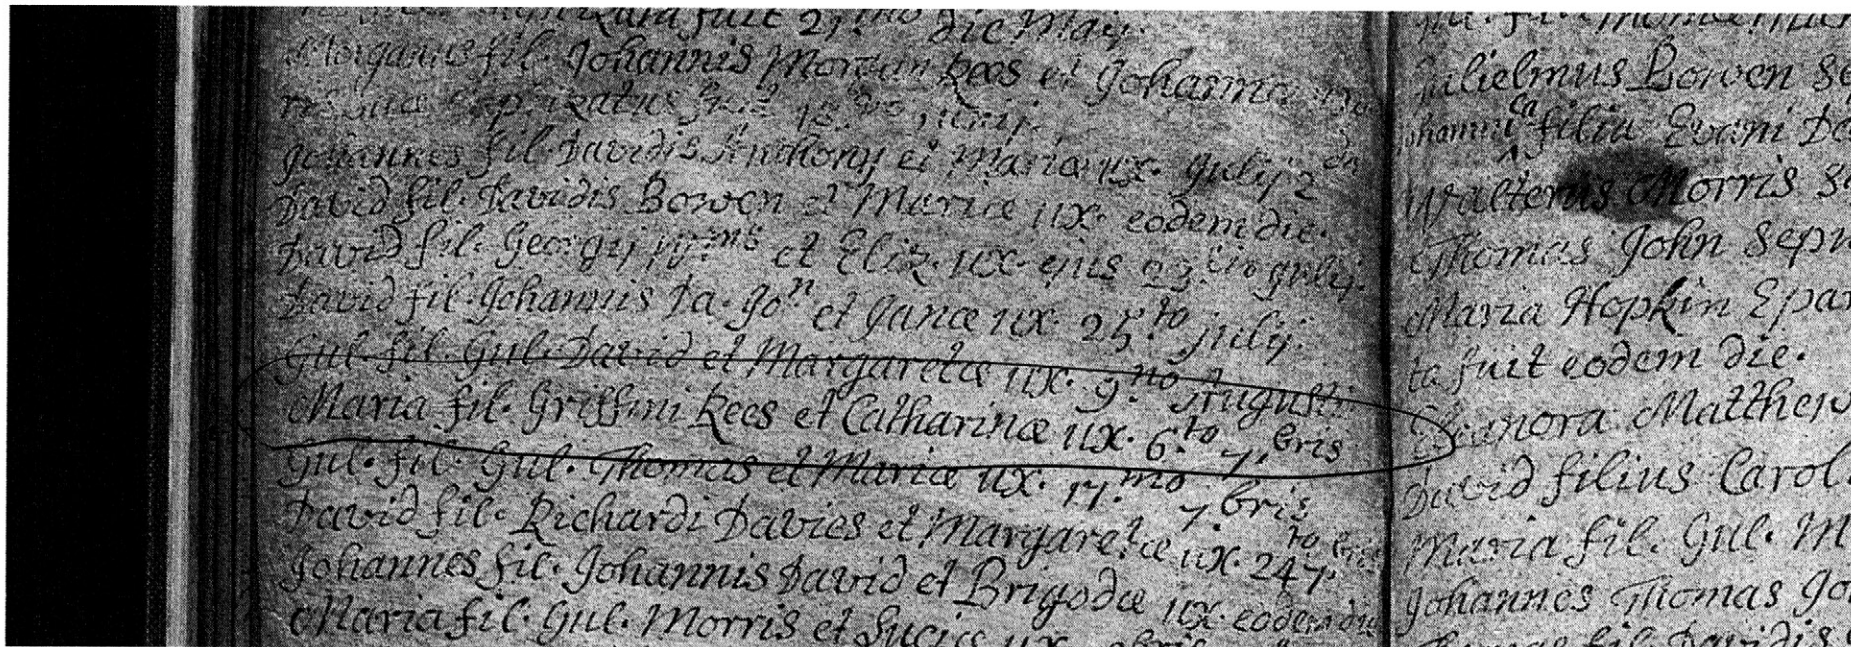 fuit 21.mo die Maij.
Morganus fil. Johannis Morgan Rees et Johanna
Baptizatus fuit 12.mo Junij.
Johannes fil. Davidis Anthony et Maria ux. Julij 2do
David fil. Davidis Bowen et Mariæ ux. eodem die.
David fil. Georgij Wms et Eliz. ux. ejus 23.tio Julij.
David fil. Johannis Da. Jon et Janæ ux. 25.to Julij.
Gul. fil. Gul. David et Margaretæ ux. 9.no Augusti
Maria fil. Griffini Rees et Catharinæ ux. 6.to 7.bris
Gul. fil. Gul. Thomas et Mariæ ux. 17.mo 7.bris
David fil. Richardi Davies et Margaretæ ux. 24to 7.bris
Johannes fil. Johannis David et Brigodæ ux. eodem die
Maria fil. Gul. Morris et Luciæ ux.
fil. Thomæ
Gulielmus Bowen Se
Johannica filia Evani Da
Walterus Morris Se
Thomas John Sepu
Maria Hopkin Epar
ta fuit eodem die.
Elianora Matthew
David filius Carol
Maria fil. Gul. M
Johannes Thomas Jo
Thomas fil. Davidis